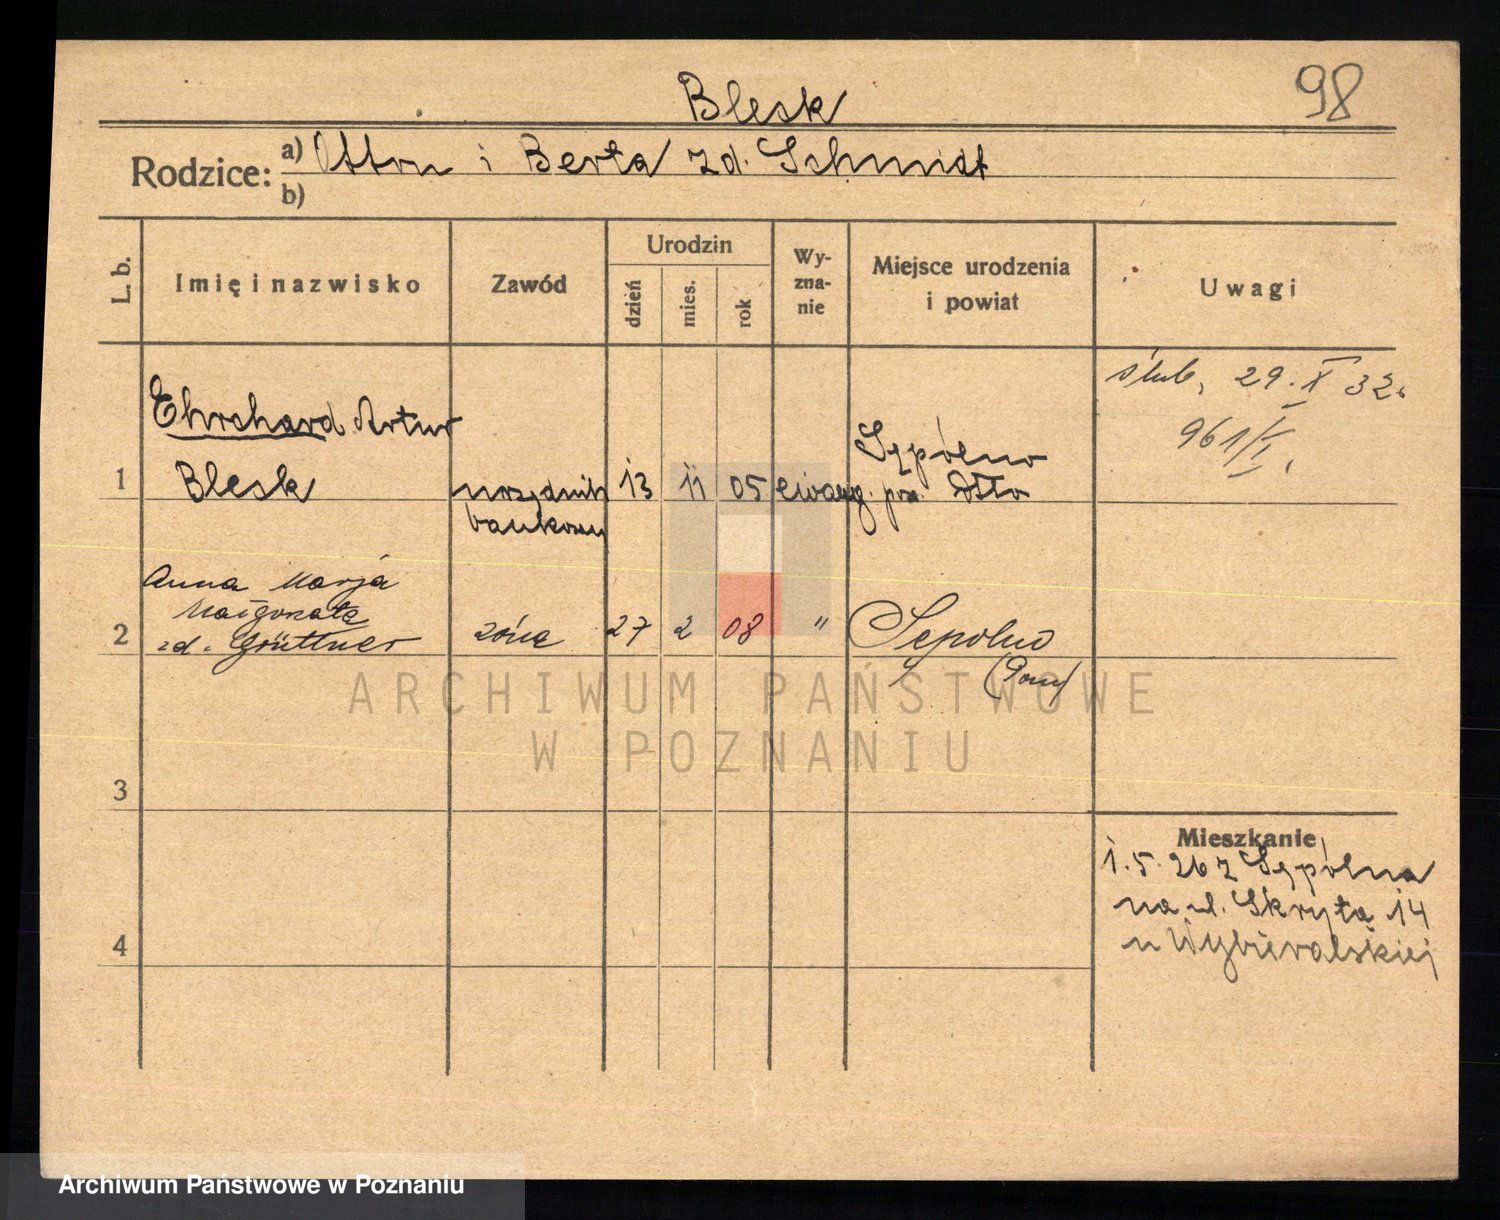 98
Blesk
Rodzice: a) Otton i Berta zd. Schmidt
b)
L. b.
Imię i nazwisko
Zawód
Urodzin
dzień
mies.
rok
Wy-
zna-
nie
Miejsce urodzenia
i powiat
Uwagi
ślub, 29. X 32.
Ehrchard Artur
Blesk
1
urzędnik
bankowy
13 11 05 ewang.
Sępólno
pow.
Anna Marja
Małgorzata
zd. Grüttner
2
żona
27 2 08 "
Sępolno
(Pom)
3
4
Mieszkanie
1. 5. 26 z Sępólna
na ul. Skryta 14
ARCHIWUM PAŃSTWOWE
W POZNANIU
Archiwum Państwowe w Poznaniu